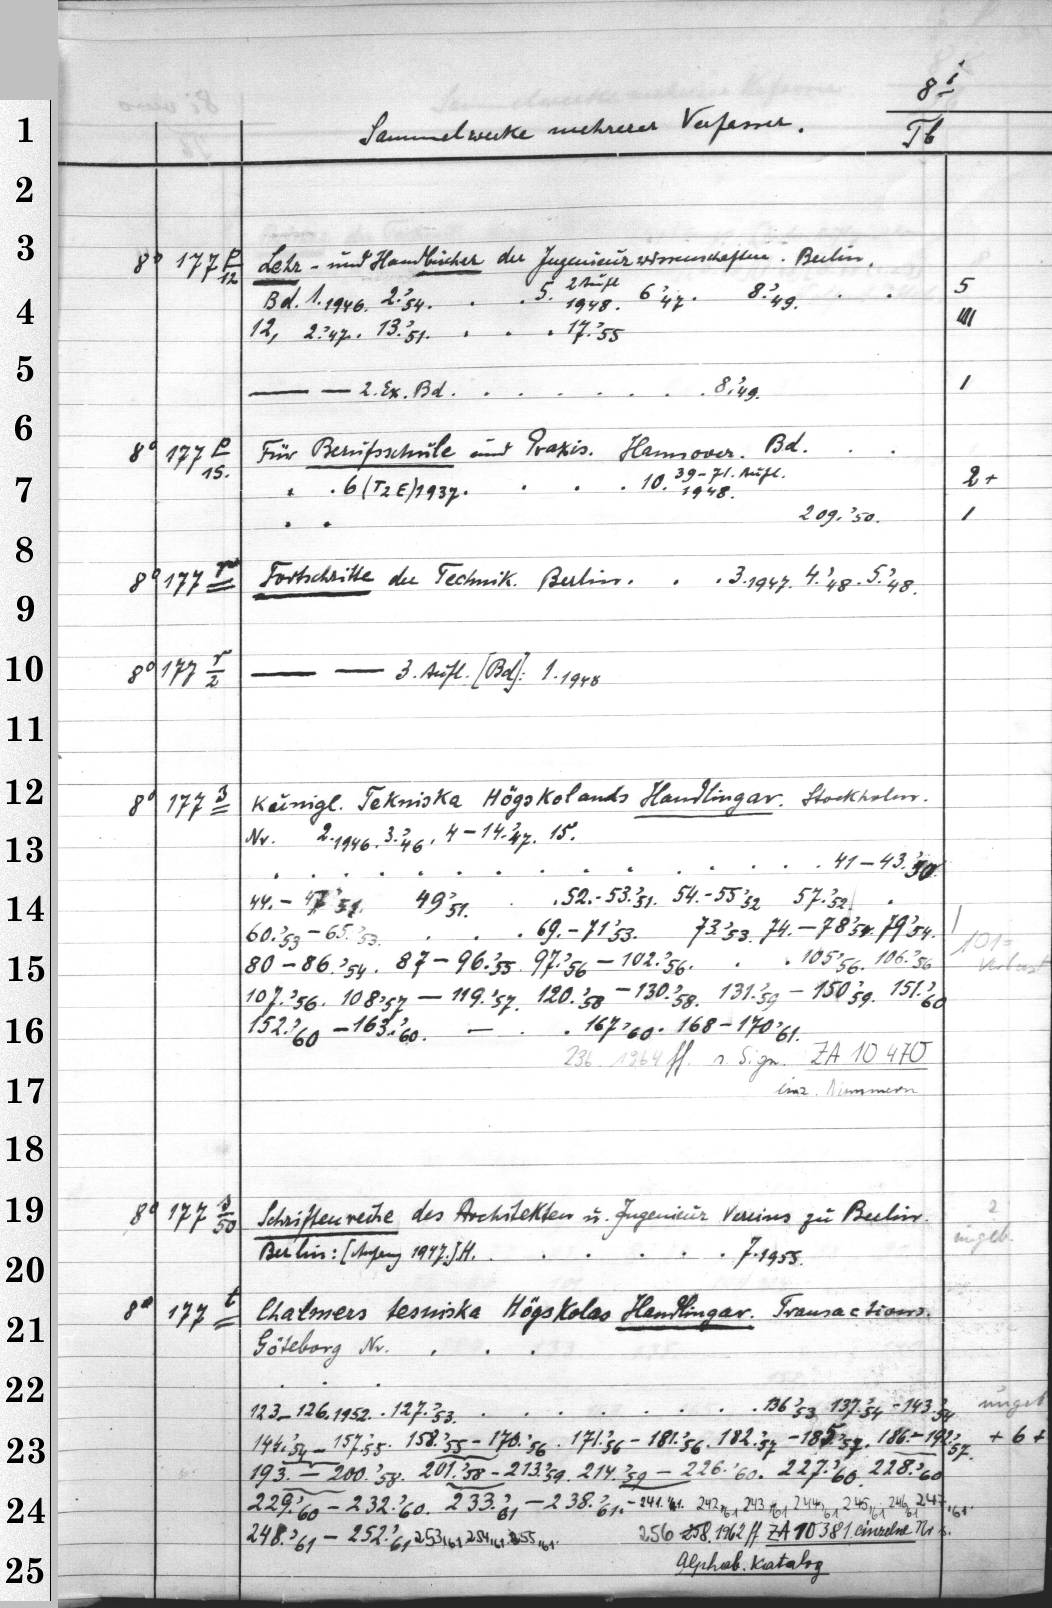 8 i
1 Sammelwerke mehrerer Verfasser. Tb
2
3 8° 177 p/12 Lehr- und Handbücher der Ingenieurwissenschaften. Berlin.
Bd. 1.1946. 2.'54. . . 5. 2 Aufl 1948. 6.'47. 8.'49. . . 5
4 12, 2.'47. 13.'51. . . . 17.'55 III
5 — — 2. Ex. Bd. . . . . . . . 8.'49. 1
6 8° 177 p/15. Für Berufsschule und Praxis. Hannover. Bd. . .
7 . . 6 (T2E) 1937. . . . 10. 39-71. Aufl. 1948. 2+
. . 209.'50. 1
8 8° 177 r Fortschritte der Technik. Berlin. . . 3.1947. 4.'48. 5.'48.
9
10 8° 177 r/2 — — 3. Aufl. [Bd]: 1.1948
11
12 8° 177 s Künigl. Tekniska Högskolands Handlingar. Stockholm.
Nr. 2.1946. 3.'46. 4-14.'47. 15.
13 . . . . . . . . . . . . . 41-43.'50.
14 44.-47'51. 49'51. . .52.-53.'51. 54.-55'52 57.'52 .
60.'53-65.'53. . . . 69.-71'53. 73.'53. 74.-78'54. 79'54.
15 80-86.'54. 87-96.'55. 97.'56-102.'56. . . 105'56. 106.'56 101= Verlust
107.'56. 108'57-119.'57. 120.'58-130.'58. 131.'59-150'59. 151.'60
16 152.'60-163.'60. — . . 167'60. 168-170'61.
236. 1964 ff. s. Sign. ZA 10 470
17 einz. Nummern
18
19 8° 177 s/50 Schriftenreihe des Architekten u. Ingenieur Vereins zu Berlin. 2 ungeb.
20 Berlin: [Anfang 1947.] H. . . . . . . 7.1955.
8° 177 t Chalmers tesniska Högskolas Handlingar. Transactions.
21 Göteborg Nr. . . .
22 . . .
123-126.1952. 127.'53. . . . . . . . . 136'53 137.'54-143.'54 ungeb
23 144.'54-157.'55. 158.'55-170.'56. 171.'56-181.'56. 182.'57-185'57. 186.-192.'57. + 6 +
193.-200.'58. 201.'58-213.'59. 214.'59-226.'60. 227.'60. 228.'60
24 229.'60-232.'60. 233.'61-238.'61.-241.'61. 242,'61, 243,'61, 244,'61, 245,'61, 246,'61 247,'61.
248.'61-252.'61, 253,'61, 254,'61, 255,'61. 256 258.1962 ff ZA 10381 einzelne Nr s.
25 Alphab. Katalog